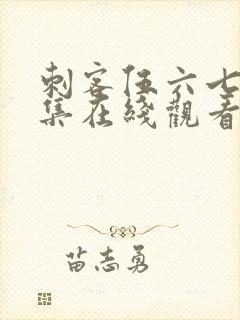 刺客伍六七
集在綫觀看
苗志勇